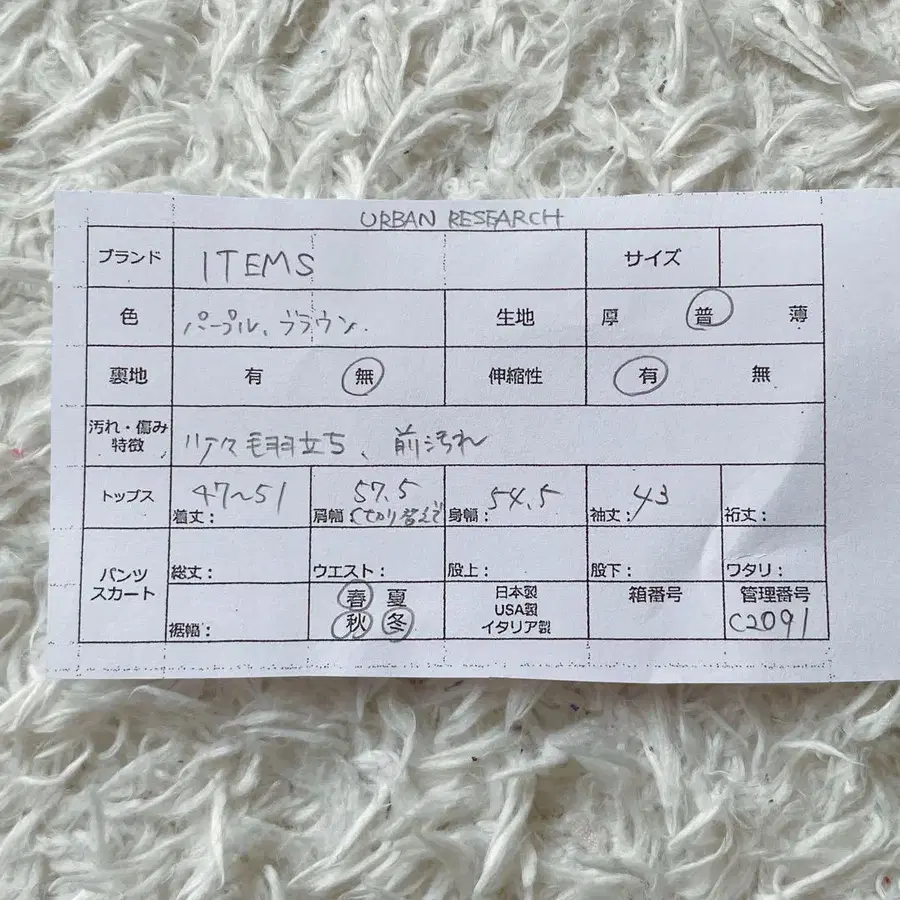 URBAN RESEARCH
ブランド ITEMS サイズ
色 パープル、ブラウン. 生地 厚 普 薄
裏地 有 無 伸縮性 有 無
汚れ・傷み
特徴 毛羽立ち、前汚れ
トップス 47〜51 57.5 54.5 43
着丈: 肩幅: 切り替えで 身幅: 袖丈: 裄丈:
パンツ
スカート
総丈: ウエスト: 股上: 股下: ワタリ:
裾幅:
春 夏
秋 冬
日本製
USA製
イタリア製
箱番号
管理番号
C2091